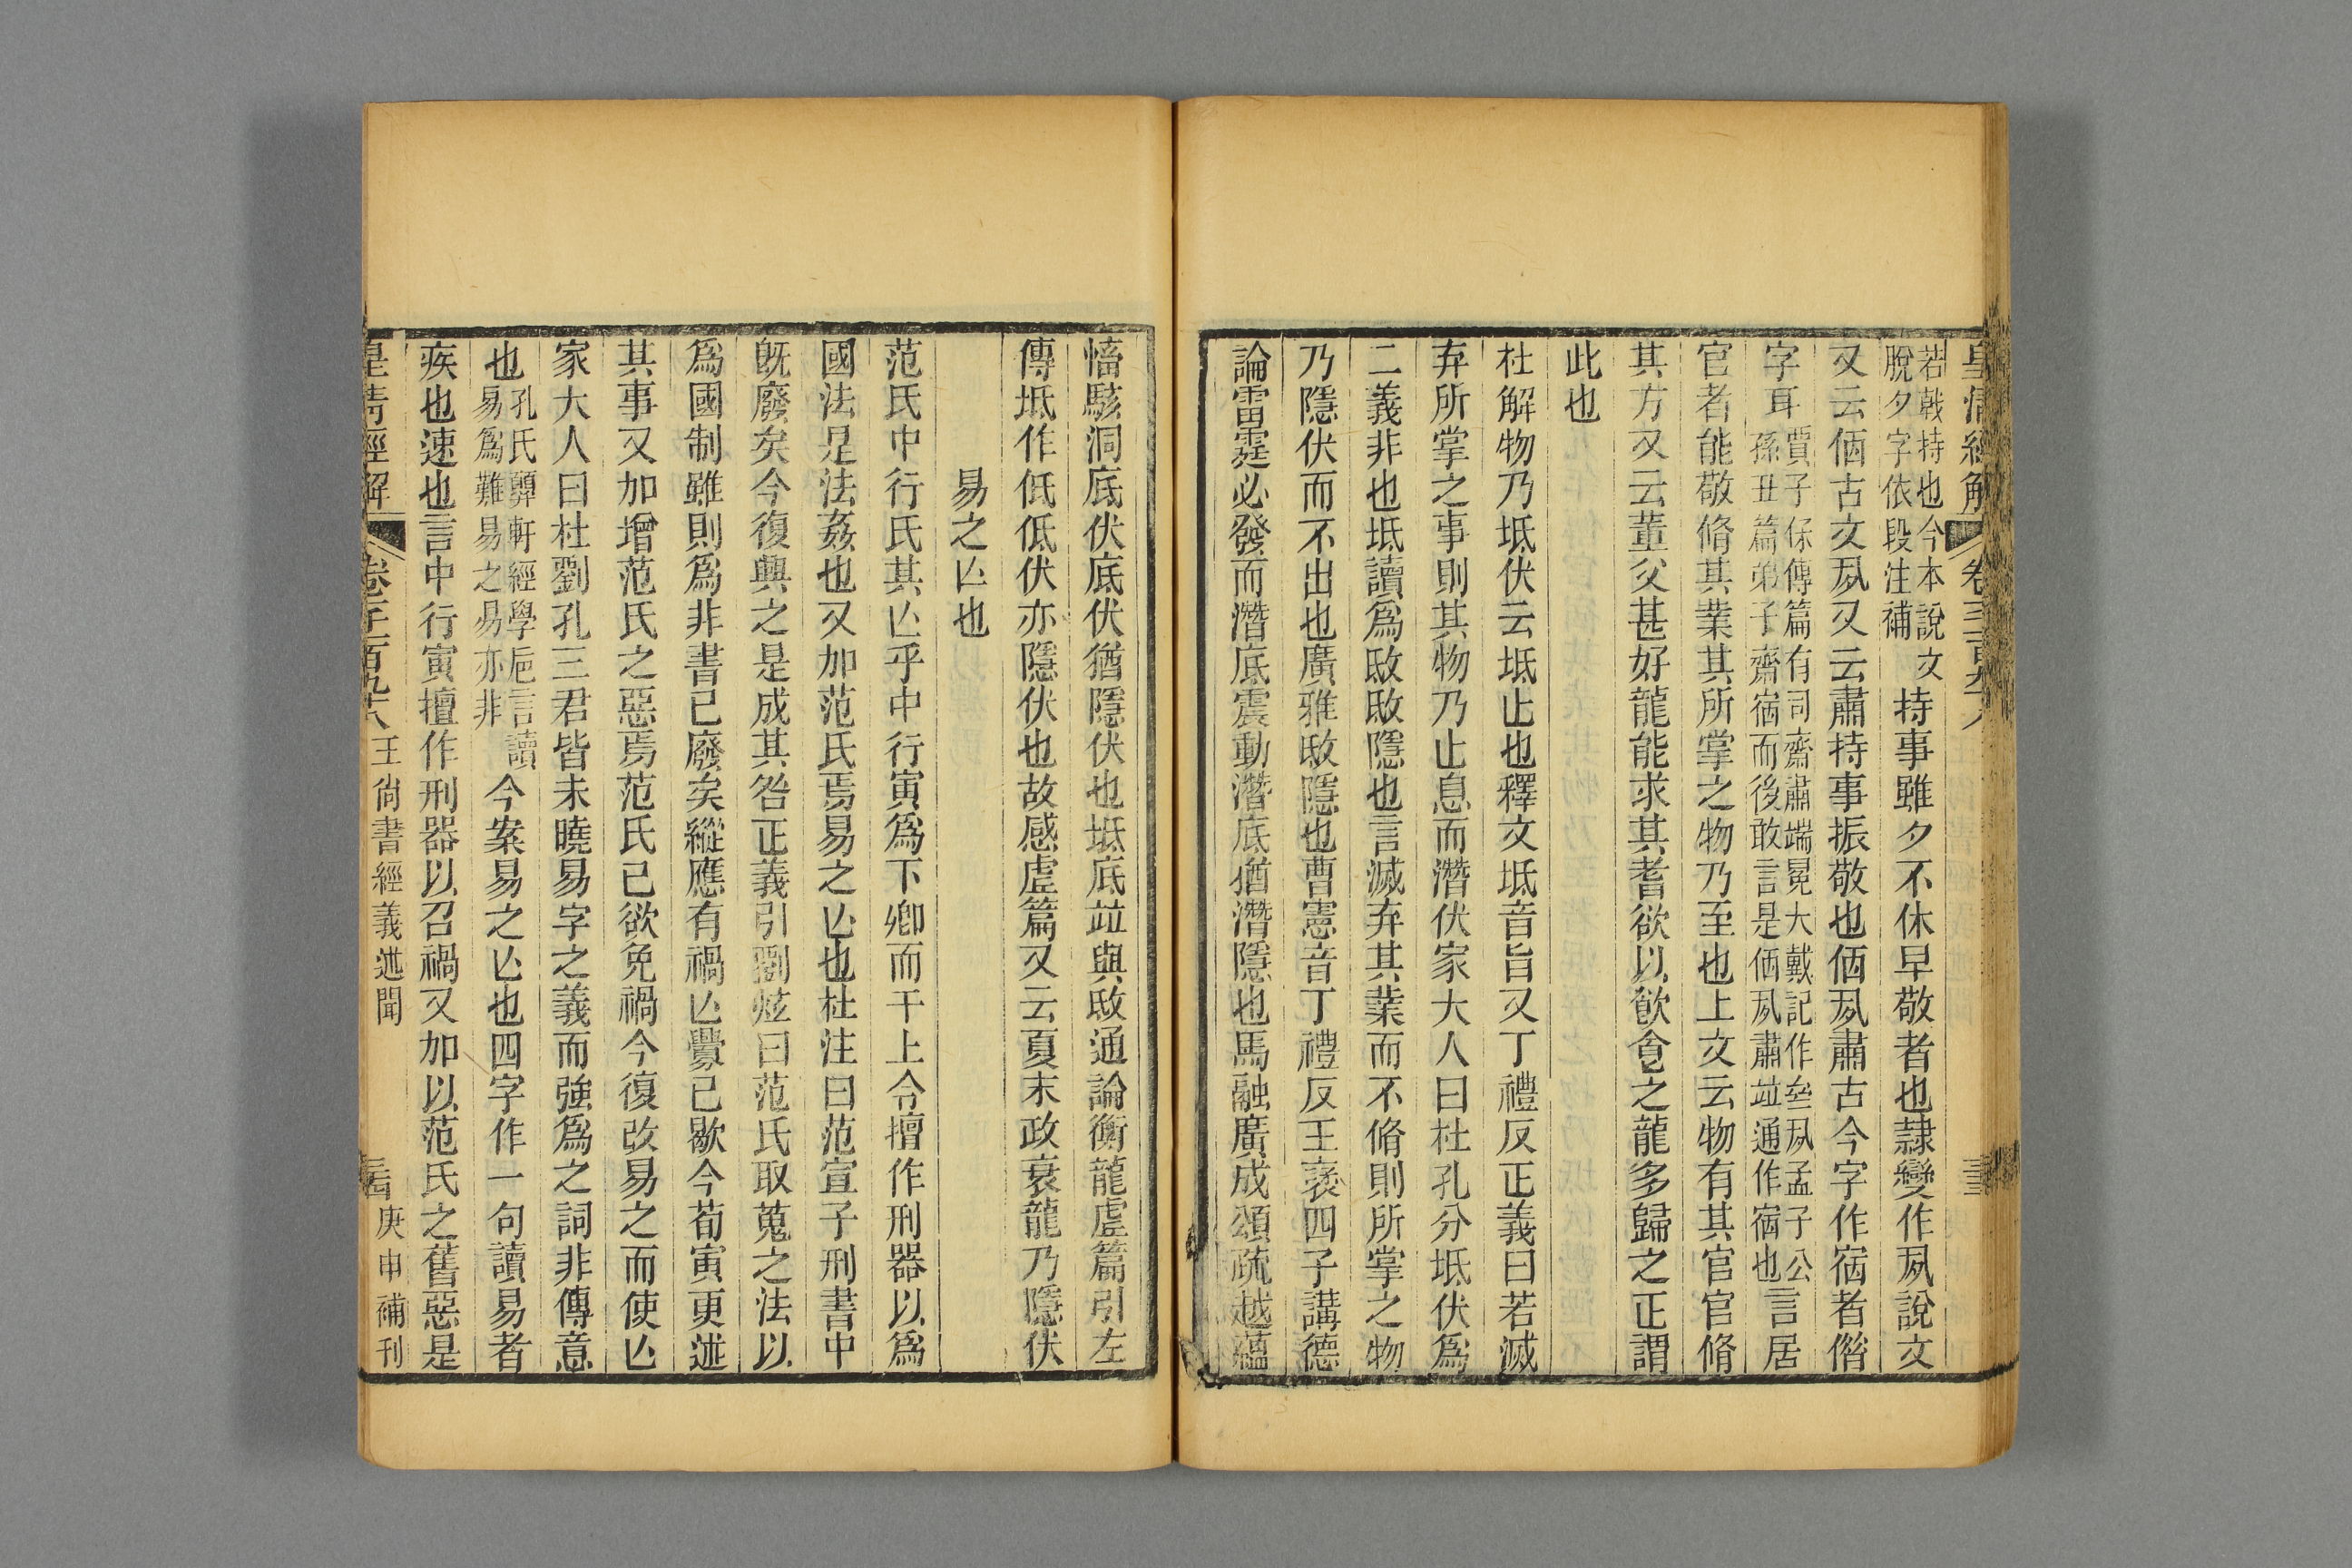 皇清經解 卷
若戟持也今本說文
脫夕字依段注補
持事雖夕不休早敬者也隷變作夙說文
又云㑉古文夙又云肅持事振敬也㑉夙肅古今字作宿者偺
字耳
賈子保傳篇有司齋肅端冕大戴記作夙孟子公
孫丑篇弟子齋宿而後敢言是㑉夙肅竝通作宿也
言居
官者能敬脩其業其所掌之物乃至也上文云物有其官官脩
其方又云董父甚好龍能求其耆欲以飮食之龍多歸之正謂
此也
杜解物乃坻伏云坻止也釋文坻音旨又丁禮反正義曰若滅
弃所掌之事則其物乃止息而潛伏家大人曰杜孔分坻伏爲
二義非也坻讀爲䧑䧑隱也言滅弃其業而不脩則所掌之物
乃隱伏而不出也廣雅䧑隱也曹憲音丁禮反王褒四子講德
論雷霆必發而潛底震動潛底猶潛隱也馬融廣成頌疏越蘊
慉駭洞底伏底伏猶隱伏也坻底竝與䧑通論衡龍虛篇引左
傳坻作低低伏亦隱伏也故感虛篇又云夏末政衰龍乃隱伏
易之亾也
范氏中行氏其亾乎中行寅爲下卿而干上令擅作刑器以爲
國法是法姦也又加范氏焉易之亾也杜注曰范宣子刑書中
旣廢矣今復興之是成其咎正義引劉炫曰范氏取蒐之法以
爲國制雖則爲非書已廢矣縱應有禍亾釁已歇今荀寅更述
其事又加增范氏之惡焉范氏已欲免禍今復改易之而使亾
家大人曰杜劉孔三君皆未曉易字之義而強爲之詞非傳意
也
孔氏顨軒經學卮言讀
易爲難易之易亦非
今案易之亾也四字作一句讀易者
疾也速也言中行寅擅作刑器以召禍又加以范氏之舊惡是
皇清經解 卷 王尙書經義述聞 庚申補刊